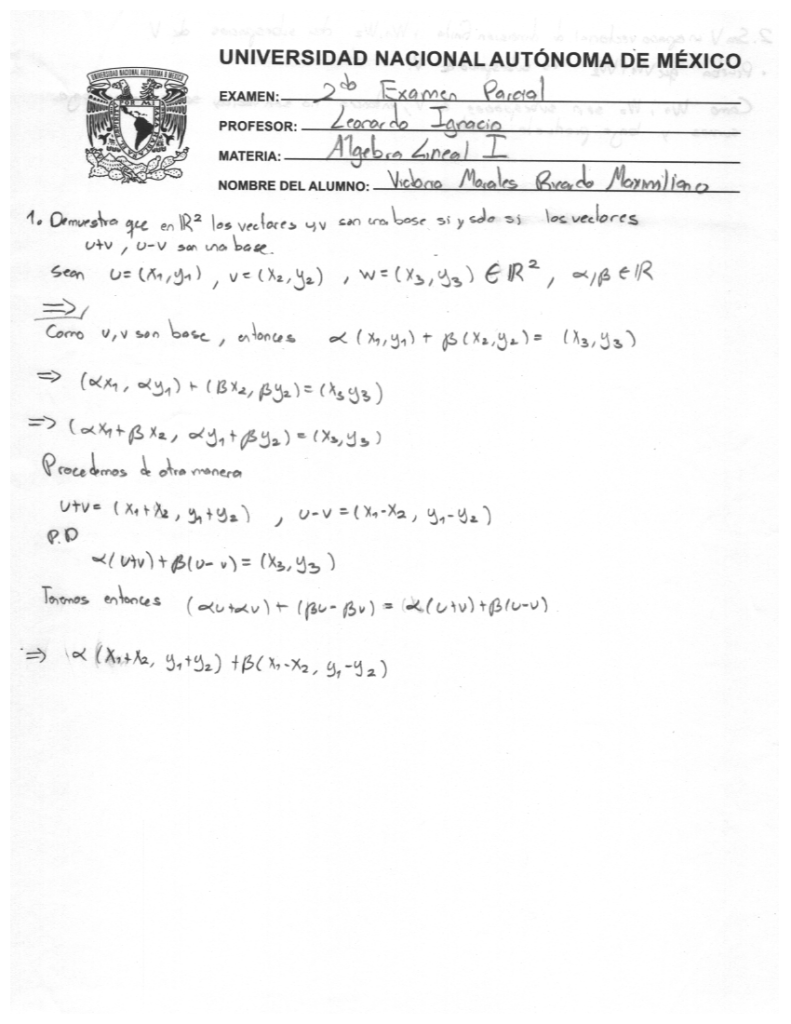 UNIVERSIDAD NACIONAL AUTÓNOMA DE MÉXICO
EXAMEN: 2do Examen Parcial
PROFESOR: Leonardo Ignacio
MATERIA: Algebra Lineal I
NOMBRE DEL ALUMNO: Victoria Morales Ricardo Maximiliano
1. Demuestra que en ℝ² los vectores u,v son una base si y solo si los vectores
u+v, u-v son una base.
Sean u=(x₁,y₁), v=(x₂,y₂), w=(x₃,y₃) ∈ ℝ², α,β ∈ ℝ
⇒/
Como u,v son base, entonces α(x₁,y₁) + β(x₂,y₂) = (x₃,y₃)
⇒ (αx₁, αy₁) + (βx₂, βy₂) = (x₃ y₃)
⇒ (αx₁+βx₂, αy₁+βy₂) = (x₃,y₃)
Procedemos de otra manera
u+v = (x₁+x₂, y₁+y₂) , u-v = (x₁-x₂, y₁-y₂)
P.D
α(u+v)+β(u-v) = (x₃,y₃)
Tenemos entonces (αu+αv)+(βu-βv) = α(u+v)+β(u-v)
⇒ α(x₁+x₂, y₁+y₂) +β(x₁-x₂, y₁-y₂)